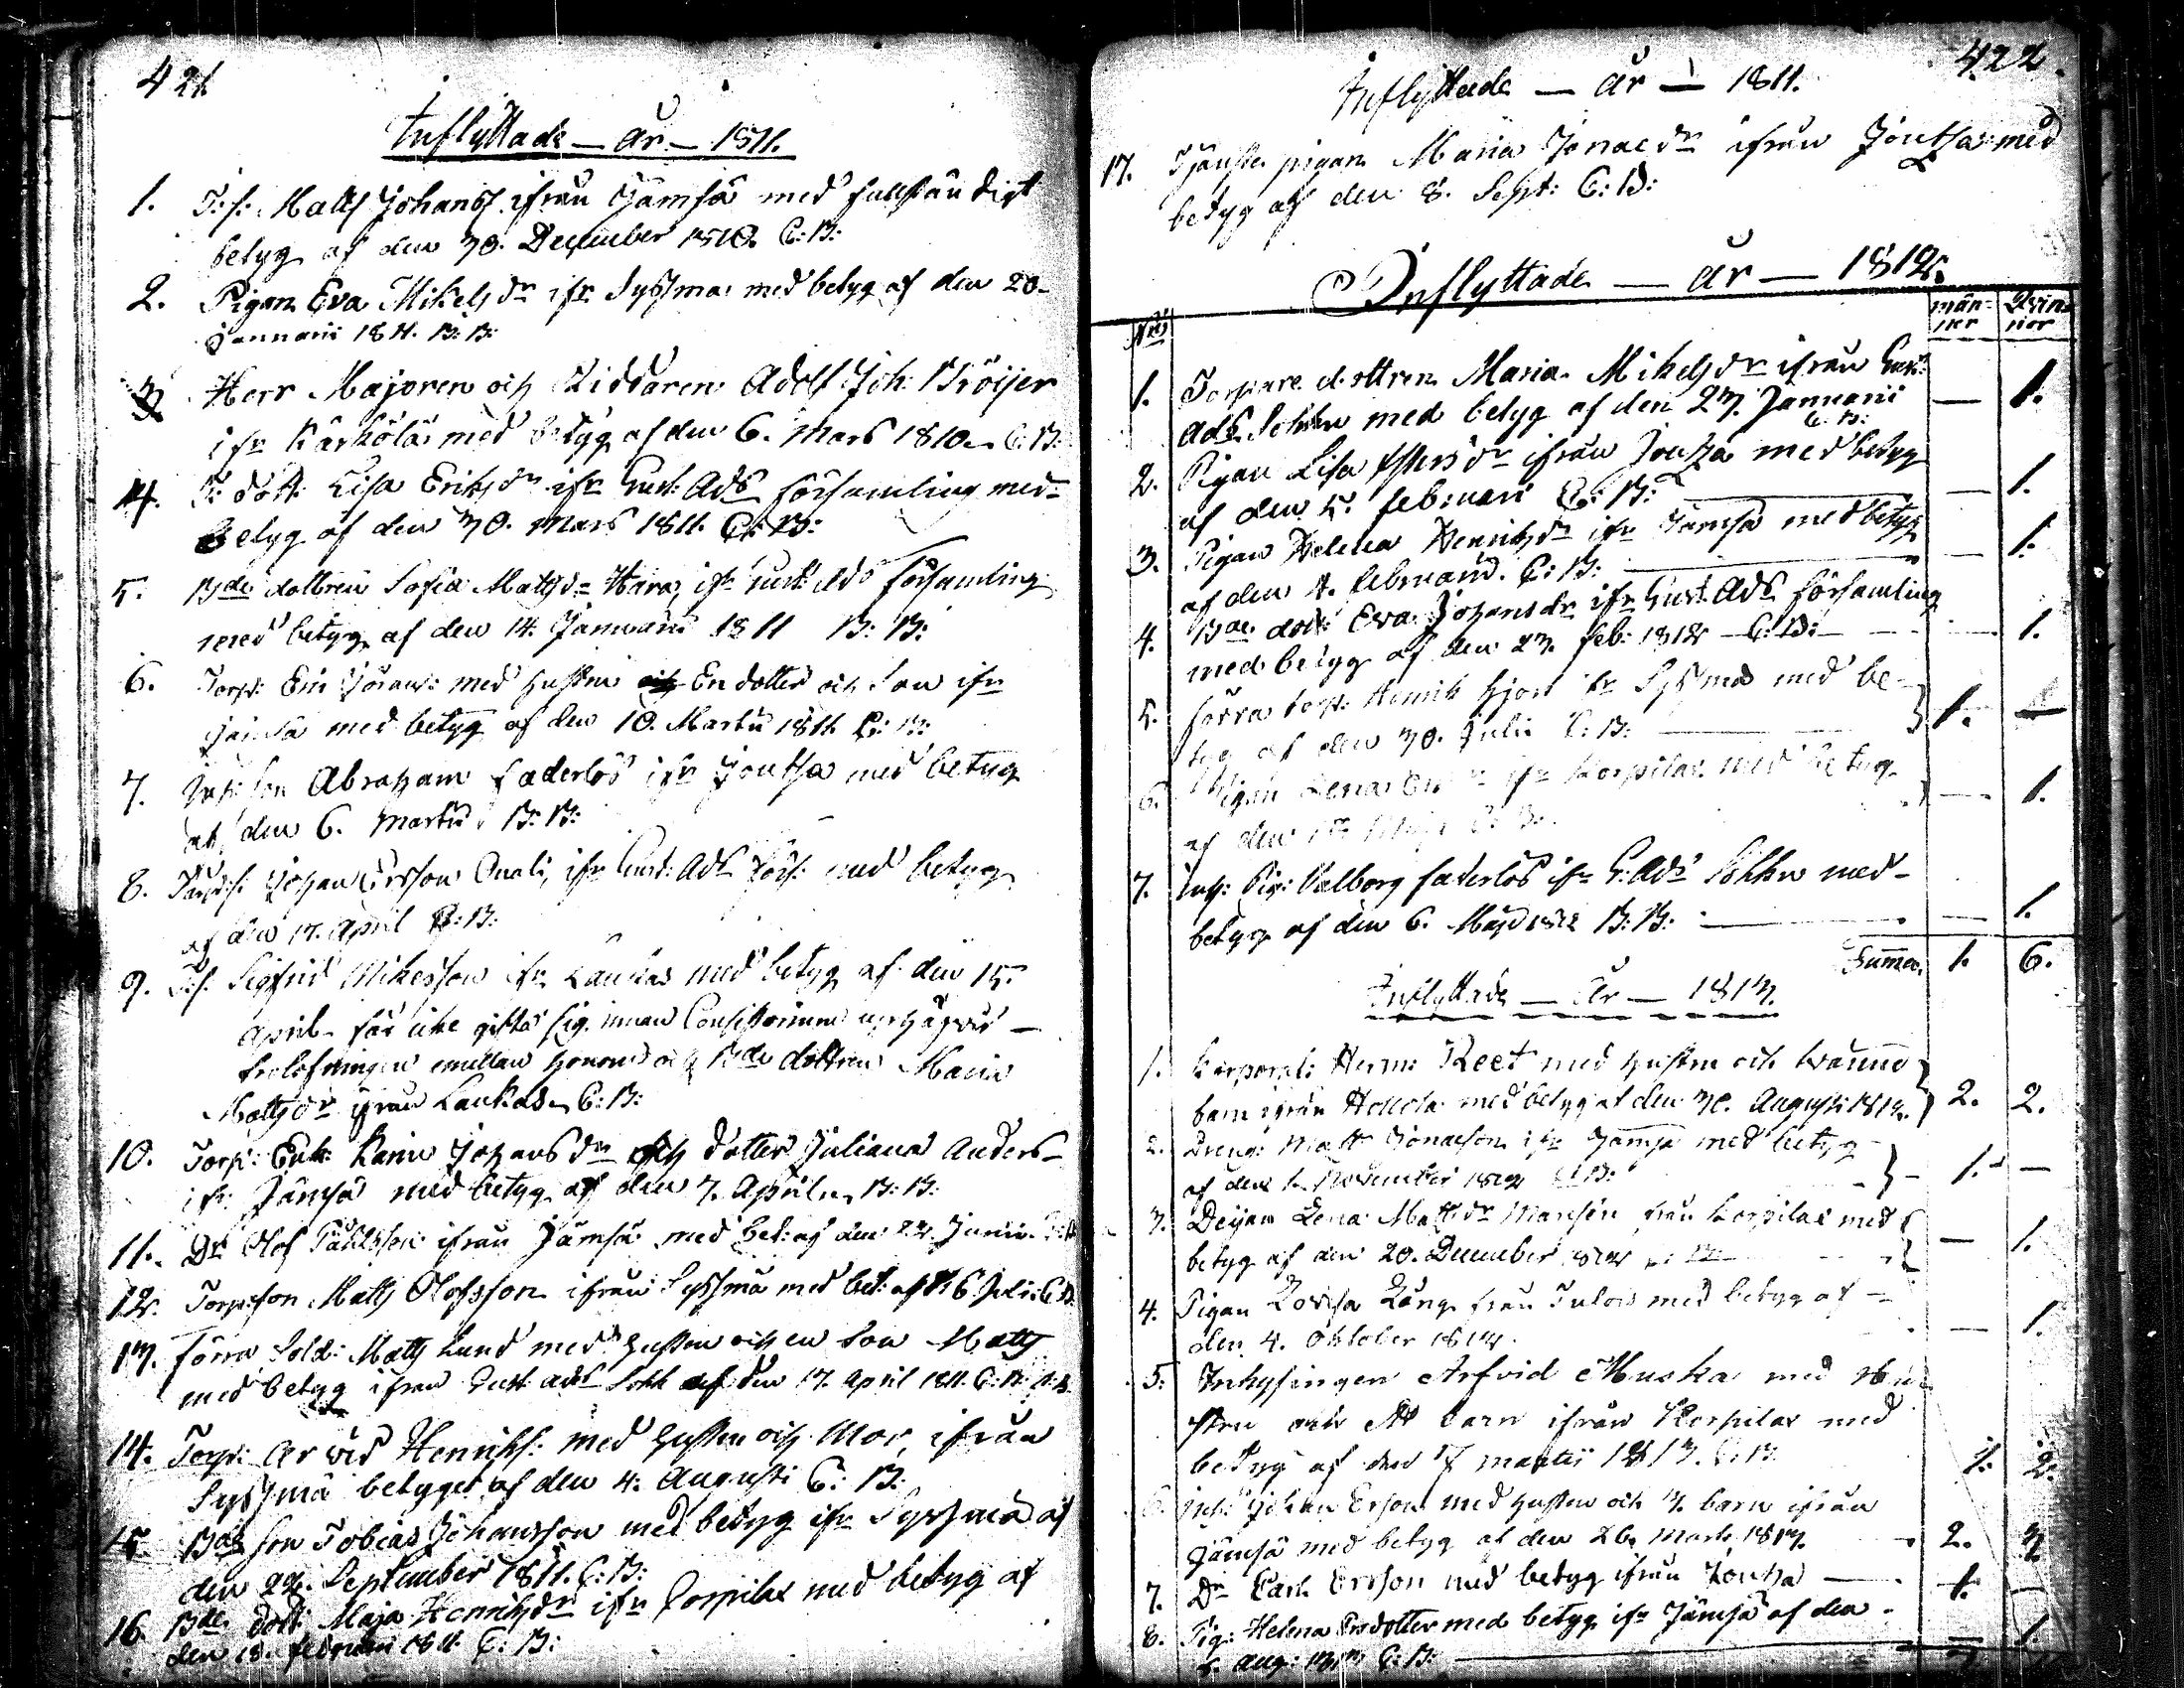 421.
Inflyttade — år — 1811.
1. T: s: Matts Johanss. ifrån Jämsä med fullständigt
betyg af den 30. December 1810. C: B:
2. Pigan Eva Mikels dr ifr Sysmä med betyg af den 20.
Januarii 1811. B: B:
3 Herr Majoren och Riddaren Adolf Joh: Bröijer
ifr Kärkölä med betyg af den 6. Mars 1810. C: B:
4. T: dott: Lisa Eriks dr ifr Gust: Ads församling med
betyg af den 30. Mars 1811. C: B:
5. Bde dottren Sofia Mattsd: Hara, ifr Gust: Ads församling
med betyg af den 14. Januarii 1811 B: B:
6. Torp: Eric Jöranss: med hustru och En dotter och Son ifr
Jämsä med betyg af den 10. Martii 1811. C: B:
7. Inh: son Abraham faderlös ifr Joutsa med betyg
af den 6. Martii. B: B:
8. Johan Ersson ifr Gust: Ads förs: med betyg
af den 17. April C: B:
9. T: s: Sigfrid Mikelsson ifr Laukas med betyg af den 15.
April får icke gifta sig innan Consistorium upphäfvit
trolofningen emellan honom och Bde dottren Maria
Matts dr ifrån Laukas. C: B:
10. Torp: Enk: Karin Johans dr och dotter Juliana Anders
ifr: Jämsä med betyg af den 7. April. B: B:
11. Dr Olof Påhlsson ifrån Jämsä med bet: af den 22. Junii. C: B
12. Torp: son Matts Olofsson ifrån Sysmä med bet: af d: 6 Juli: C: B.
13. förra Sold: Matts Lund med hustru och en Son Matts
med betyg ifrån Gust: Ads Sokn af den 17. April 1811. C: B:
14. Torp: Arvid Henrikss: med hustru och Mor, ifrån
Sysmä betyget af den 4. Augusti C: B:
15. Bde son Tobias Johansson med betyg ifr Sysmä af
den 22. September 1811. C: B:
16. Bde dott: Maja Henriks dr ifr Corpilax med betyg af
den 18. februari 1811. C: B:
422.
Inflyttade — år — 1811.
17. Tjänste pigan Maria Jonae dr ifrån Joutsa med
betyg af den 8. Sept: C: B:
Inflyttade — år — 1812.
No män-ner Qvin-nor
1. Torpare dottren Maria Mikels dr ifrån Gust:
Ads. Sokn med betyg af den 23. Januarii C: B: — 1.
2. Pigan Lisa dr ifrån Joutsa med betyg
af den 5. februari C: B: — 1.
3. Pigan Helena Henriks dr ifr Jämsä med betyg
af den 4. februarii. C: B: — 1.
4. Bde dott: Eva Johans dr ifr Gust: Ads församling
med betyg af den 23. feb: 1812 — C: B: — 1.
5. förra torp: Henrik Hjort ifr Sysmä med be-
tyg af den 30. Julii C: B: 1. —
6. Pigan Lena ifr Korpilax med betyg
af den — 1.
7. Inh: Pig: Valborg faderlös ifr G: Ads Sokn med
betyg af den 6. Maji 1812 B: B: — 1.
Summa. 1. 6.
Inflyttade — År — 1813.
1. Korporal: Herm: Reet med hustru och tvänne
barn ifrån Hollola med betyg af den 30. Augusti 1812. 2. 2.
2. Dreng: Matts Jonasson ifr Jämsä med betyg
af den 1. November 1812 C: B: 1. —
3. Deijan Lena Matts dr från Korpilax med
betyg af den 20. December 1812 — 1.
4. Pigan Lovisa Lång från Tulois med betyg af
den 4. Oktober 1812. — 1.
5. Inhysingen Arfvid Muska med Hu-
stru och Ett barn ifrån Korpilax med
betyg af den 7 Martii 1813. C: B: 1. 2.
6. Inh: Johan Erson med hustru och 3. barn ifrån
Jämsä med betyg af den 26. Mars 1813. 2. 3
7. Dr Carl Ersson med betyg ifrån Joutsa — 1. —
8. Pig: Helena Ersdotter med betyg ifr Jämsä af den
5. aug: 1813 C: B: — 1.